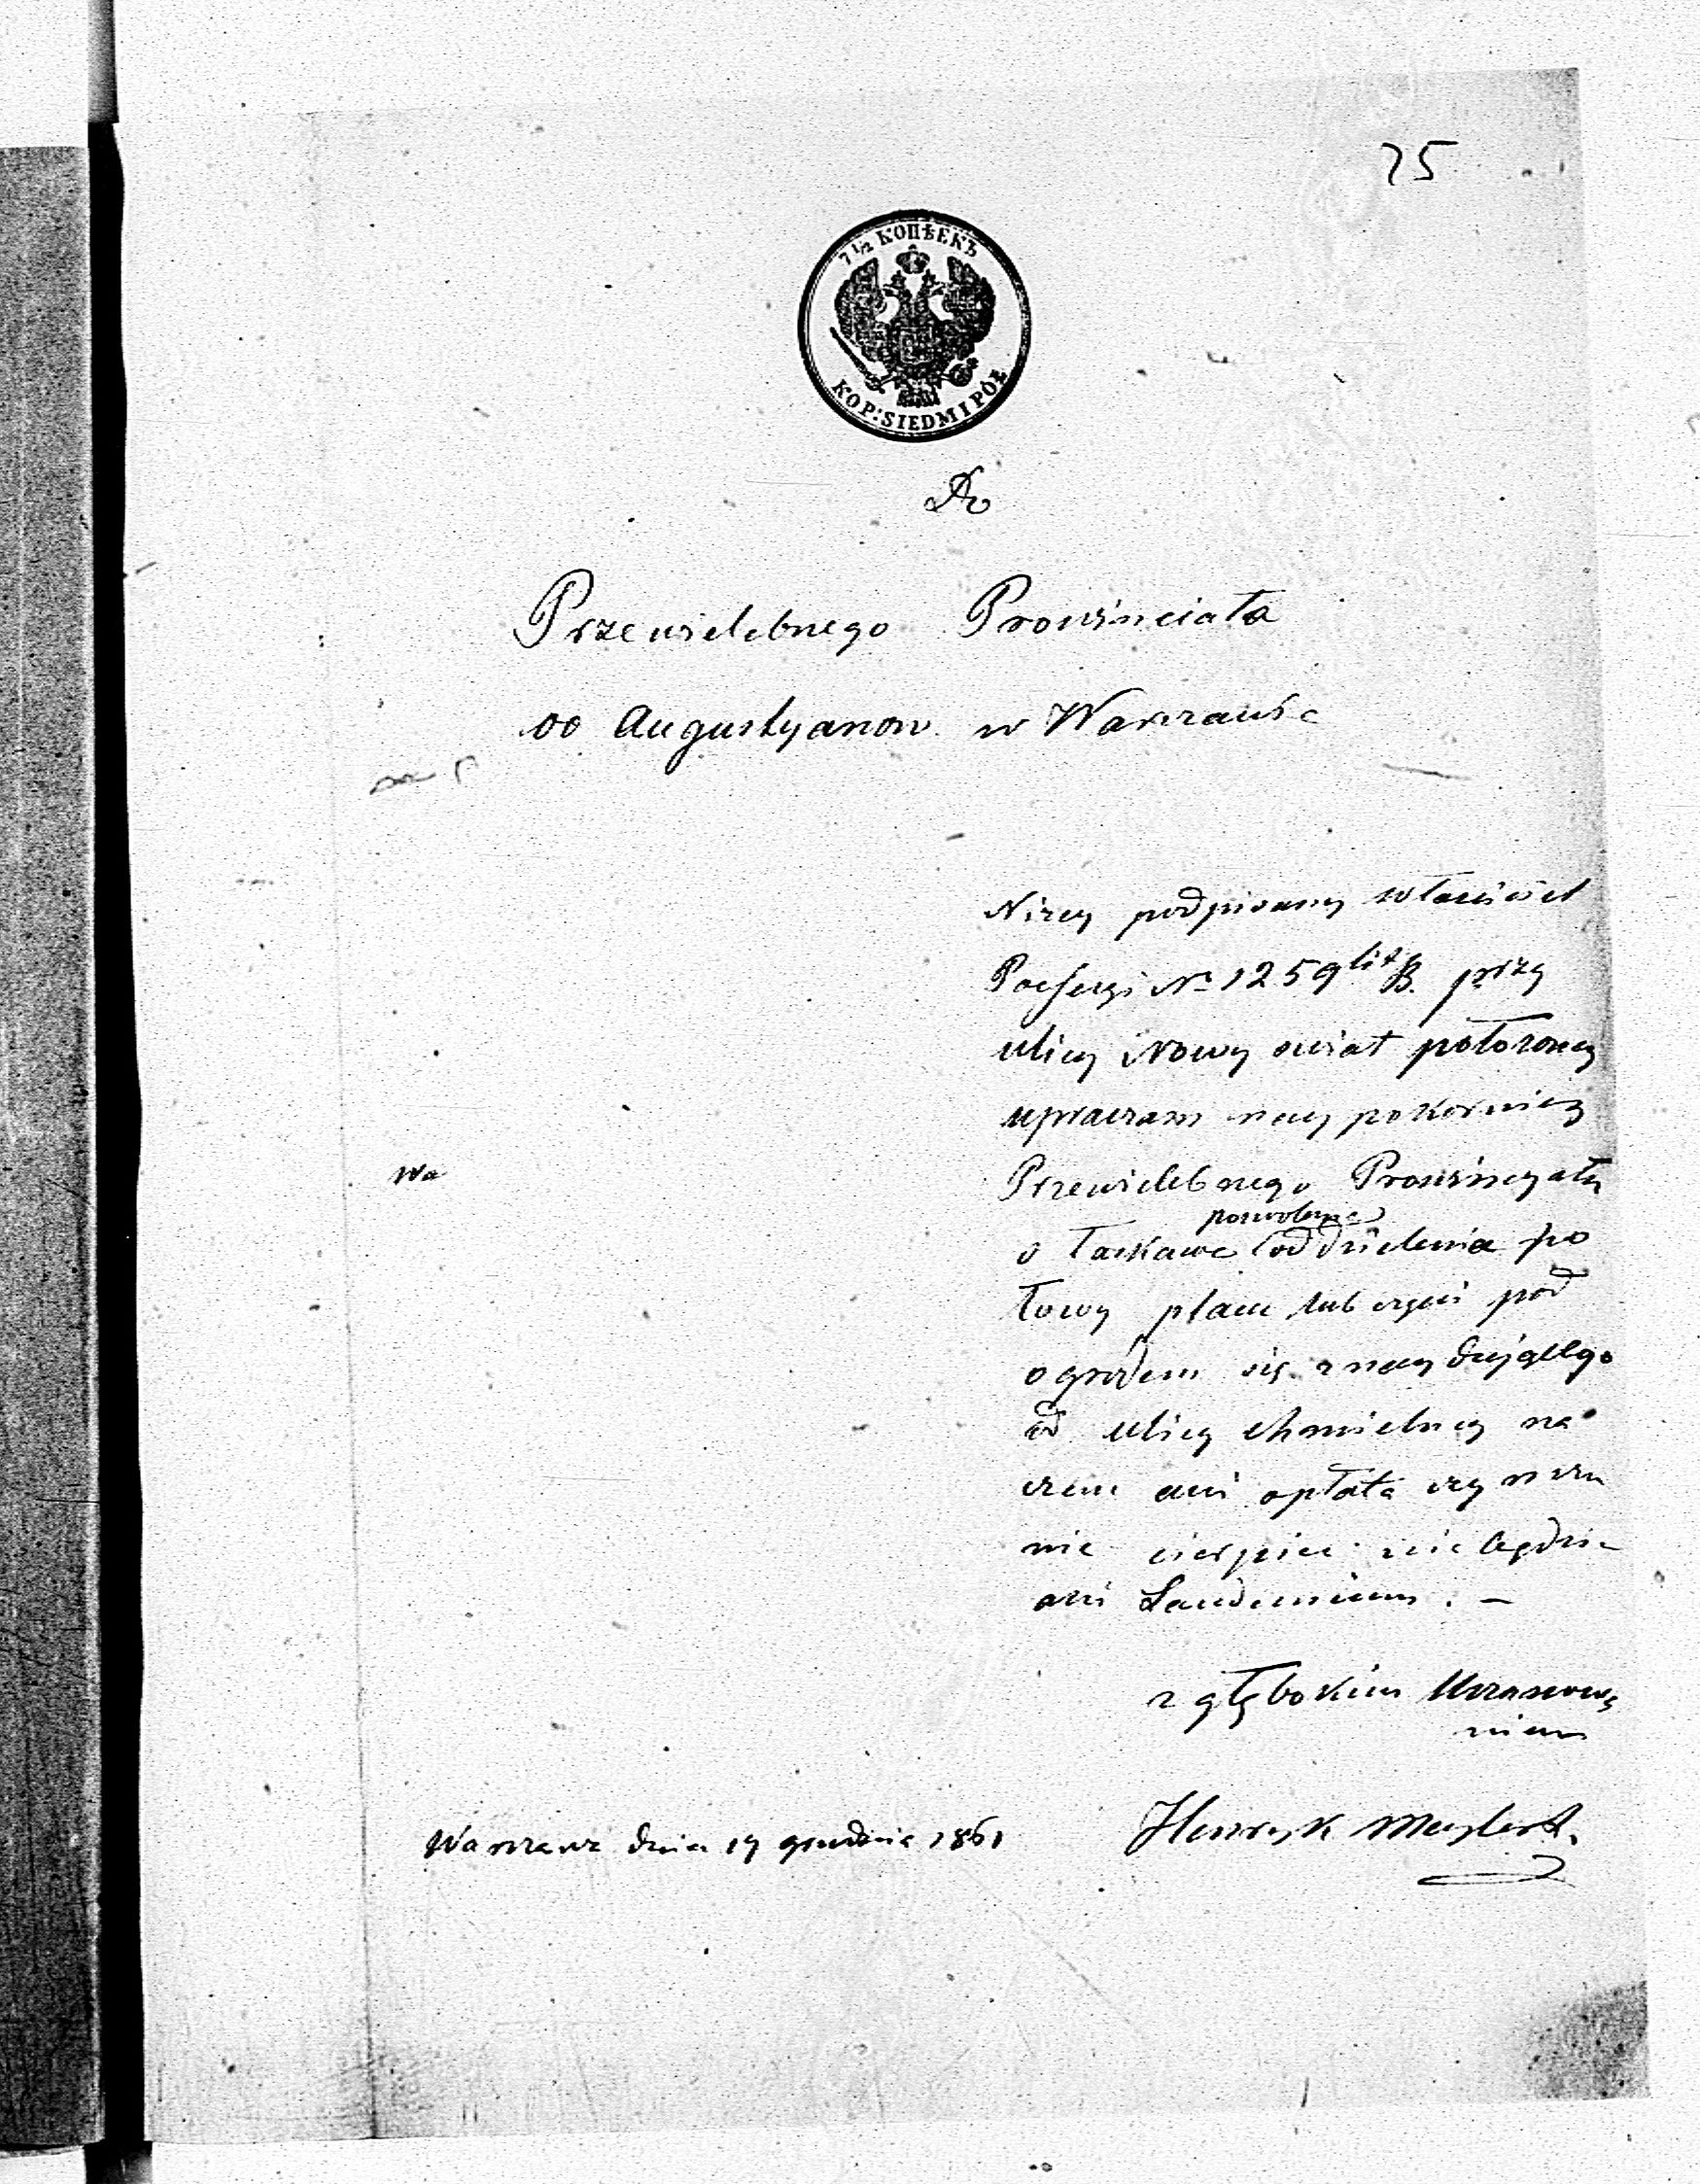 75
7½ КОПѢЕКЪ
KOP: SIEDM I PÓŁ
Do
Przewielebnego Prowinciała
OO Augustyanow w Warszawie
Nizey podpisany właściciel
Possessyi No 1259 lit B. przy
ulicy Nowy swiat położoney
upraszam nay pokorniey
Przewielebnego Prowincyała
pozwolenie
o łaskawe oddzielenia po
łowy placu lub częsci pod
ogrodem się znaydującego
od ulicy chmielney na
czem ani opłata czynszu
nie cierpiec nie będzie
ani Laudemium. -
z głębokim Uszanowa
niem
Wa
Warszawa dnia 19 grudnia 1861
Henryk